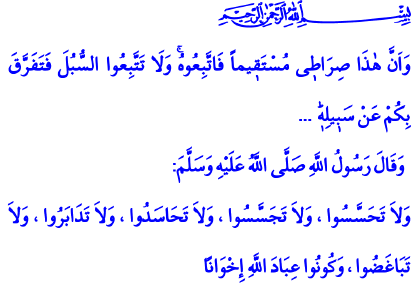 بِسْمِ اللهِ الرَّحْمٰنِ الرَّحِيمِ
وَاَنَّ هٰذَا صِرَاط۪ي مُسْتَق۪يماً فَاتَّبِعُوهُۚ وَلَا تَتَّبِعُوا السُّبُلَ فَتَفَرَّقَ
بِكُمْ عَنْ سَب۪يلِه۪ۜ ...
وَقَالَ رَسُولُ اللَّهِ صَلَّى اللَّهُ عَلَيْهِ وَسَلَّمَ:
وَلاَ تَحَسَّسُوا ، وَلاَ تَجَسَّسُوا ، وَلاَ تَحَاسَدُوا ، وَلاَ تَدَابَرُوا ، وَلاَ
تَبَاغَضُوا ، وَكُونُوا عِبَادَ اللَّهِ إِخْوَانًا